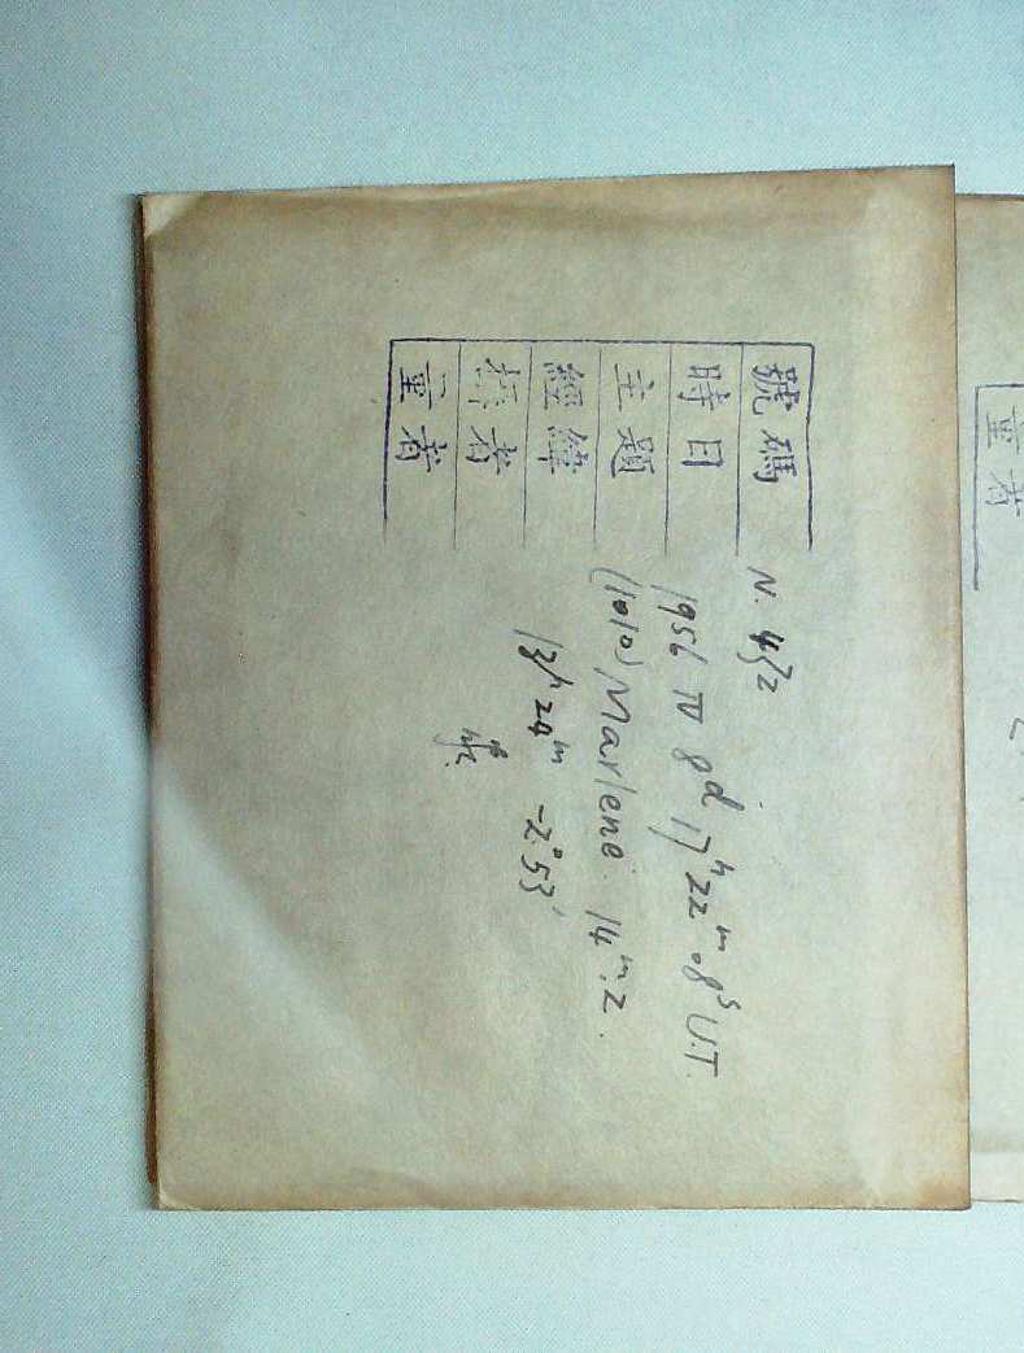 號碼 N. 432
時日 1956 IV 8d 17h 22m .08s U.T.
主題 (1010) Marlene 14m.2.
經緯 13h 24m -2° 53′
者
量者
量者